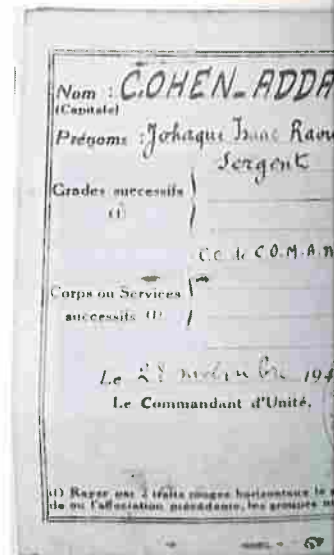 Nom : COHEN-ADDA
(Capitale)
Prénoms : Isaac Raou
Sergent
Grades successifs
(1)
C.O.M.A.
Corps ou Services
successifs (1)
Le 28 194
Le Commandant d'Unité,
(1) Rayer par 2 traits rouges horizontaux le
de ou l'affectation les groupes